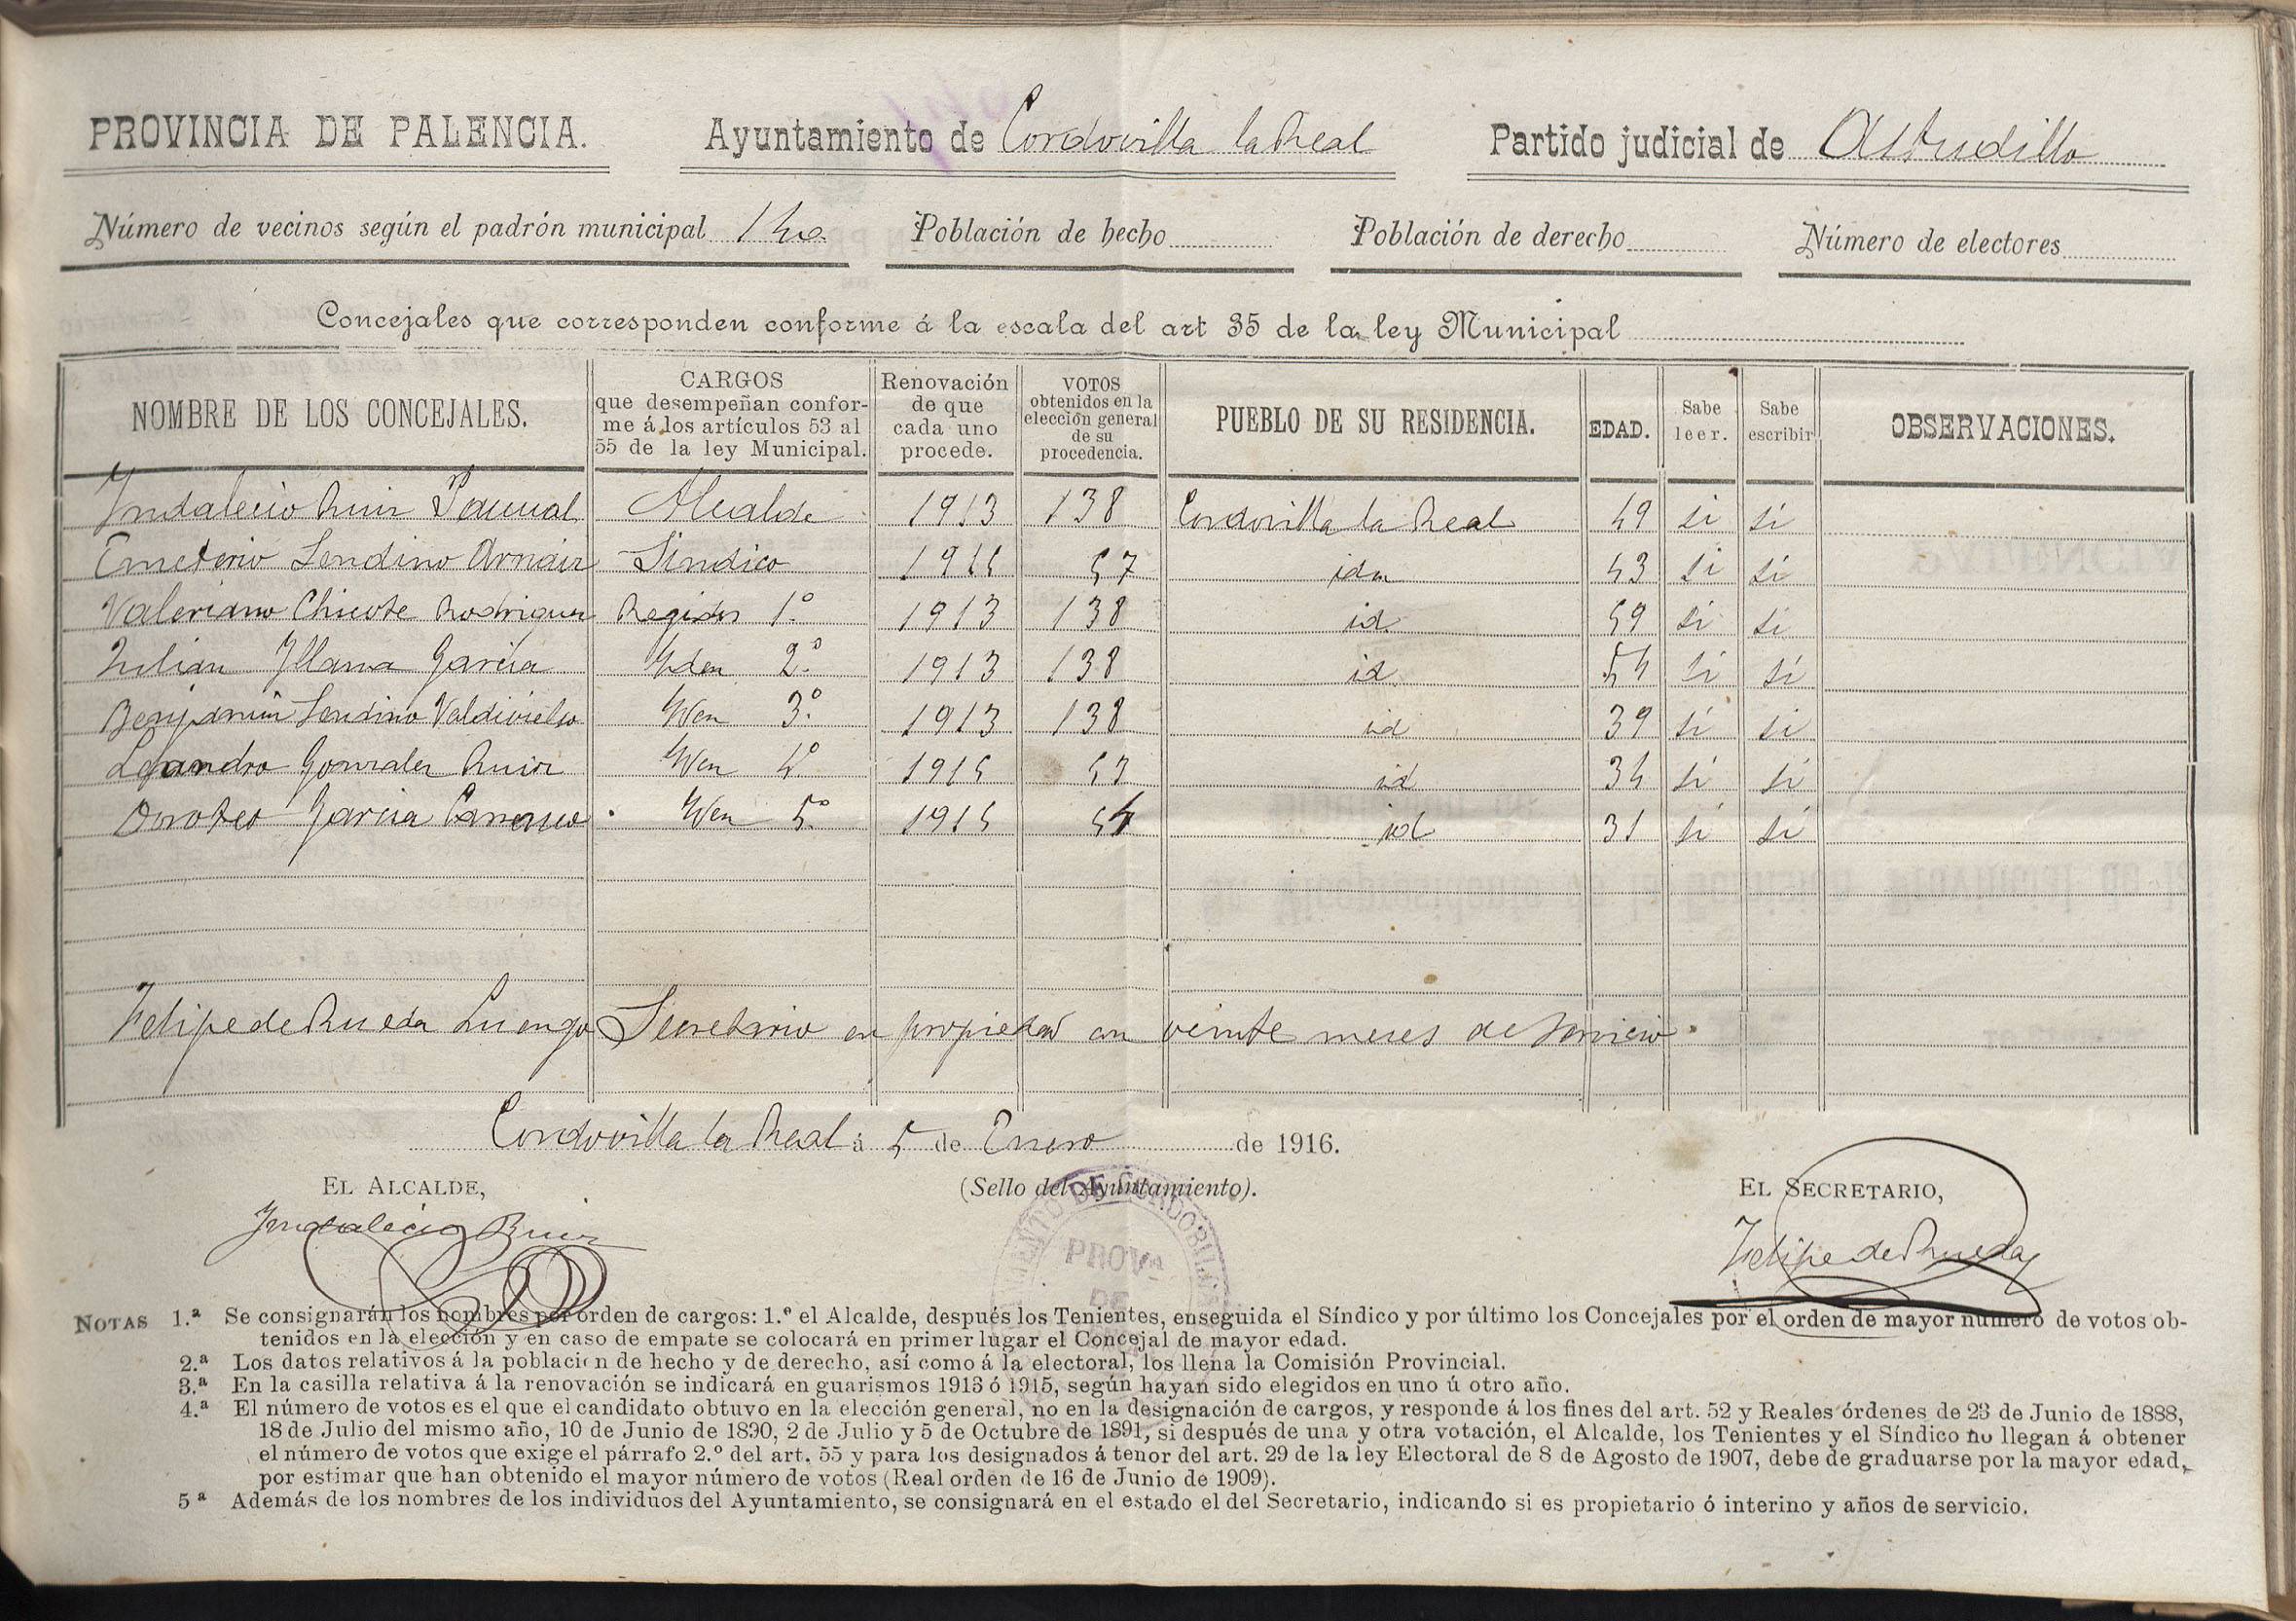 PROVINCIA DE PALENCIA. Ayuntamiento de Cordovilla la Real Partido judicial de Astudillo
Número de vecinos según el padrón municipal 140 Población de hecho Población de derecho Número de electores
Concejales que corresponden conforme á la escala del art 35 de la ley Municipal
NOMBRE DE LOS CONCEJALES. CARGOS que desempeñan conforme á los artículos 53 al 55 de la ley Municipal. Renovación de que cada uno procede. VOTOS obtenidos en la elección general de su procedencia. PUEBLO DE SU RESIDENCIA. EDAD. Sabe leer. Sabe escribir OBSERVACIONES.
Yndalecio Ruiz Pascual Alcalde 1913 138 Cordovilla la Real 49 si si
Emeterio Sendino Arnaiz Sindico 1915 57 idn 43 si si
Valeriano Chicote Rodriguez Regidor 1.º 1913 138 id. 59 si si
Julian Yllana Garcia Yden 2.º 1913 138 id. 54 si si
Benjamin Sendino Valdivielso Yden 3.º 1913 138 id 39 si si
Leandro Gonzalez Ruiz Yden 4º 1915 57 id 34 si si
Doroteo Garcia Yden 5º 1915 54 id 31 si si
Felipe de Rueda Luengo Secretario en propiedad con veinte meses de servicio.
Cordovilla la Real á 5 de Enero de 1916.
EL ALCALDE, (Sello del Ayuntamiento). EL SECRETARIO,
Yndalecio Ruiz Felipe de Rueda
PROVª
DE
NOTAS 1.ª Se consignarán los nombres por orden de cargos: 1.º el Alcalde, después los Tenientes, enseguida el Síndico y por último los Concejales por el orden de mayor número de votos ob-
tenidos en la elección y en caso de empate se colocará en primer lugar el Concejal de mayor edad.
2.ª Los datos relativos á la población de hecho y de derecho, así como á la electoral, los llena la Comisión Provincial.
3.ª En la casilla relativa á la renovación se indicará en guarismos 1913 ó 1915, según hayan sido elegidos en uno ú otro año.
4.ª El número de votos es el que el candidato obtuvo en la elección general, no en la designación de cargos, y responde á los fines del art. 52 y Reales órdenes de 23 de Junio de 1888,
18 de Julio del mismo año, 10 de Junio de 1890, 2 de Julio y 5 de Octubre de 1891, si después de una y otra votación, el Alcalde, los Tenientes y el Síndico no llegan á obtener
el número de votos que exige el párrafo 2.º del art. 55 y para los designados á tenor del art. 29 de la ley Electoral de 8 de Agosto de 1907, debe de graduarse por la mayor edad,
por estimar que han obtenido el mayor número de votos (Real orden de 16 de Junio de 1909).
5ª Además de los nombres de los individuos del Ayuntamiento, se consignará en el estado el del Secretario, indicando si es propietario ó interino y años de servicio.